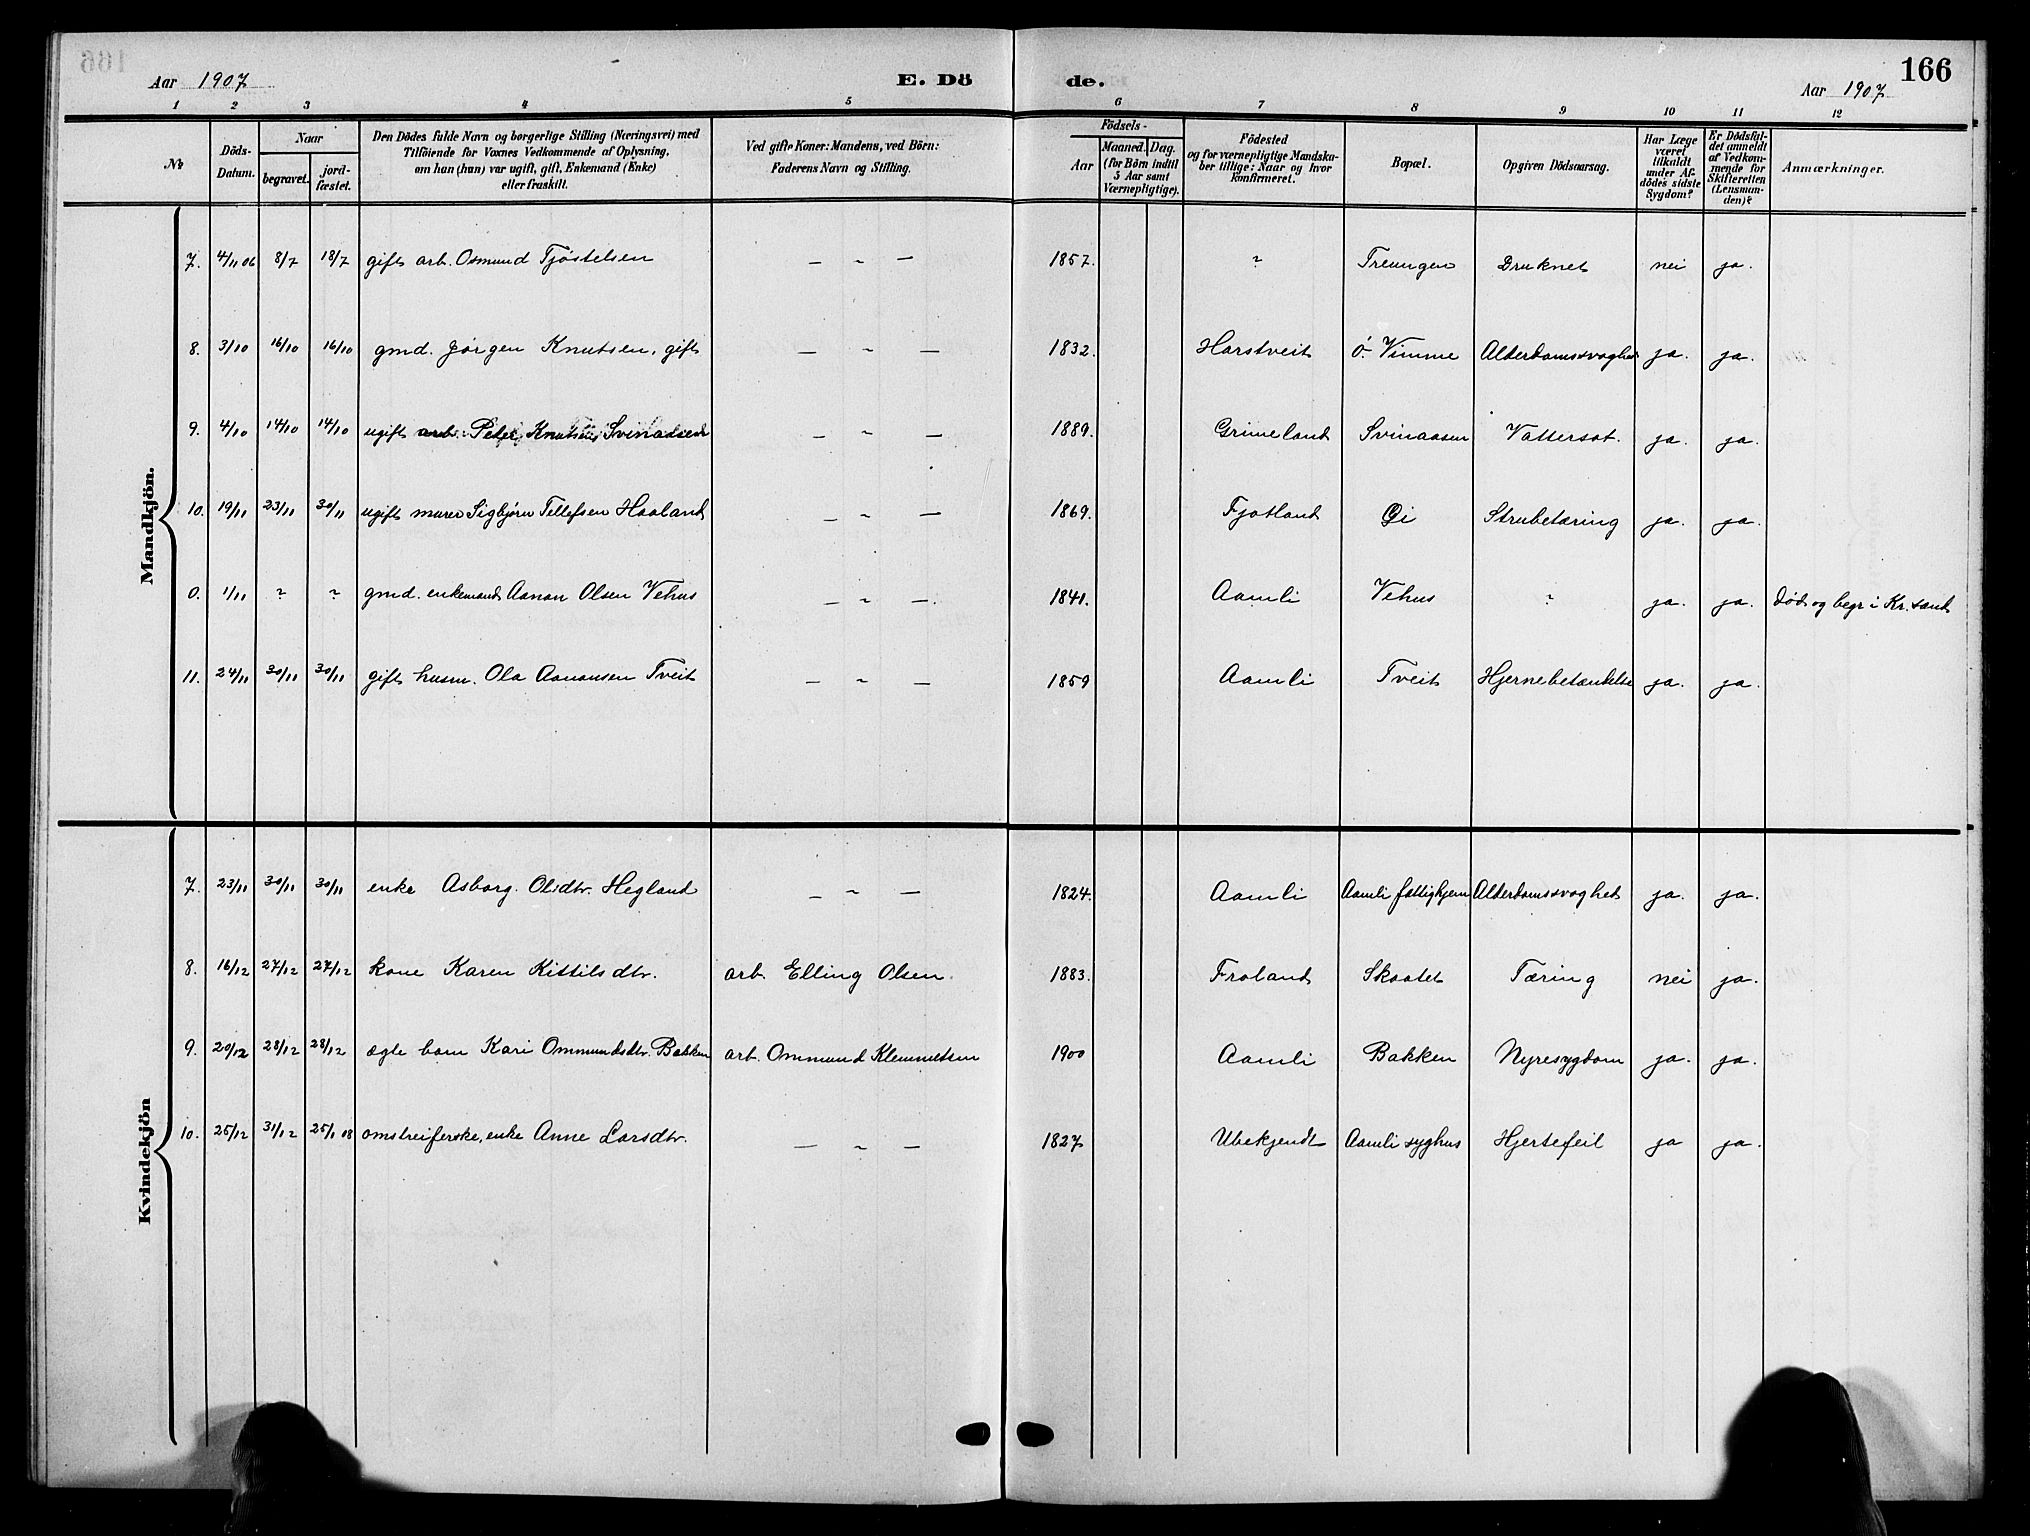 Aar 1907 E. Dö de. 166
Aar 1907
1 2 3 4 5 6 7 8 9 10 11 12
No | Döds-Datum. | Naar begravet. | jordfæstet. | Den Dödes fulde Navn og borgerlige Stilling (Næringsvei) med Tilföiende for Voxnes Vedkommende af Oplysning, om han (hun) var ugift, gift, Enkemand (Enke) eller fraskilt. | Ved gifte Koner: Mandens, ved Börn: Faderens Navn og Stilling. | Födsels- Aar | Maaned. | Dag. (for Börn indtil 5 Aar samt Værnepligtige). | Födested og for værnepligtige Mandskaber tillige: Naar og hvor konfirmeret. | Bopæl. | Opgiven Dödsaarsag. | Har Læge været tilkaldt under Afdödes sidste Sygdom? | Er Dödsfaldet anmeldt af Vedkommende for Skifteretten (Lensmanden)? | Anmærkninger.
Mandkjön.
7. 4/11 06 8/7 18/7 gift arb. Osmund Tjöstelsen — " — 1857. " Treungen Druknet nei ja.
8. 3/10 16/10 16/10 gmd. Jörgen Knutsen, gift — " — 1832. Harstveit ö. Vimme Alderdomssvaghed ja. ja.
9. 4/10 14/10 14/10 ugift arb. Peder Knutsen Svinaasen — " — 1889. Grimeland Svinaasen Vattersot. ja. ja.
10. 19/11 23/11 30/11 ugift murer Sigbjørn Tellefsen Haaland — " — 1869. Fjotland Øi Strubetæring ja. ja.
0. 1/11 " " gmd. enkemand Aanon Olsen Vehus — " —. 1841. Aamli Vehus " ja. ja. Död og begr i Kr.sand
11. 24/11 30/11 30/11 gift husm. Ola Aanonsen Tveit — " — 1859 Aamli Tveit Hjernebetændelse ja. ja.
Kvindekjön
7. 23/11 30/11 30/11 enke Asborg Olsdtr. Hegland — " — 1824. Aamli Aamli fattighjem Alderdomssvaghet ja. ja.
8. 16/12 27/12 27/12 kone Karen Kittilsdtr. arb. Elling Olsen. 1883. Froland Skaatet Tæring nei ja.
9. 20/12 28/12 28/12 ægte barn Kari Ommundsdtr. Bakken arb. Ommund Klemmetsen 1900 Aamli Bakken Nyresygdom ja. ja.
10. 25/12 31/12 25/1 08 omstreiferske, enke Anne Larsdtr. — " — 1827 Ubekjendt Aamli syghus Hjertefeil ja ja.